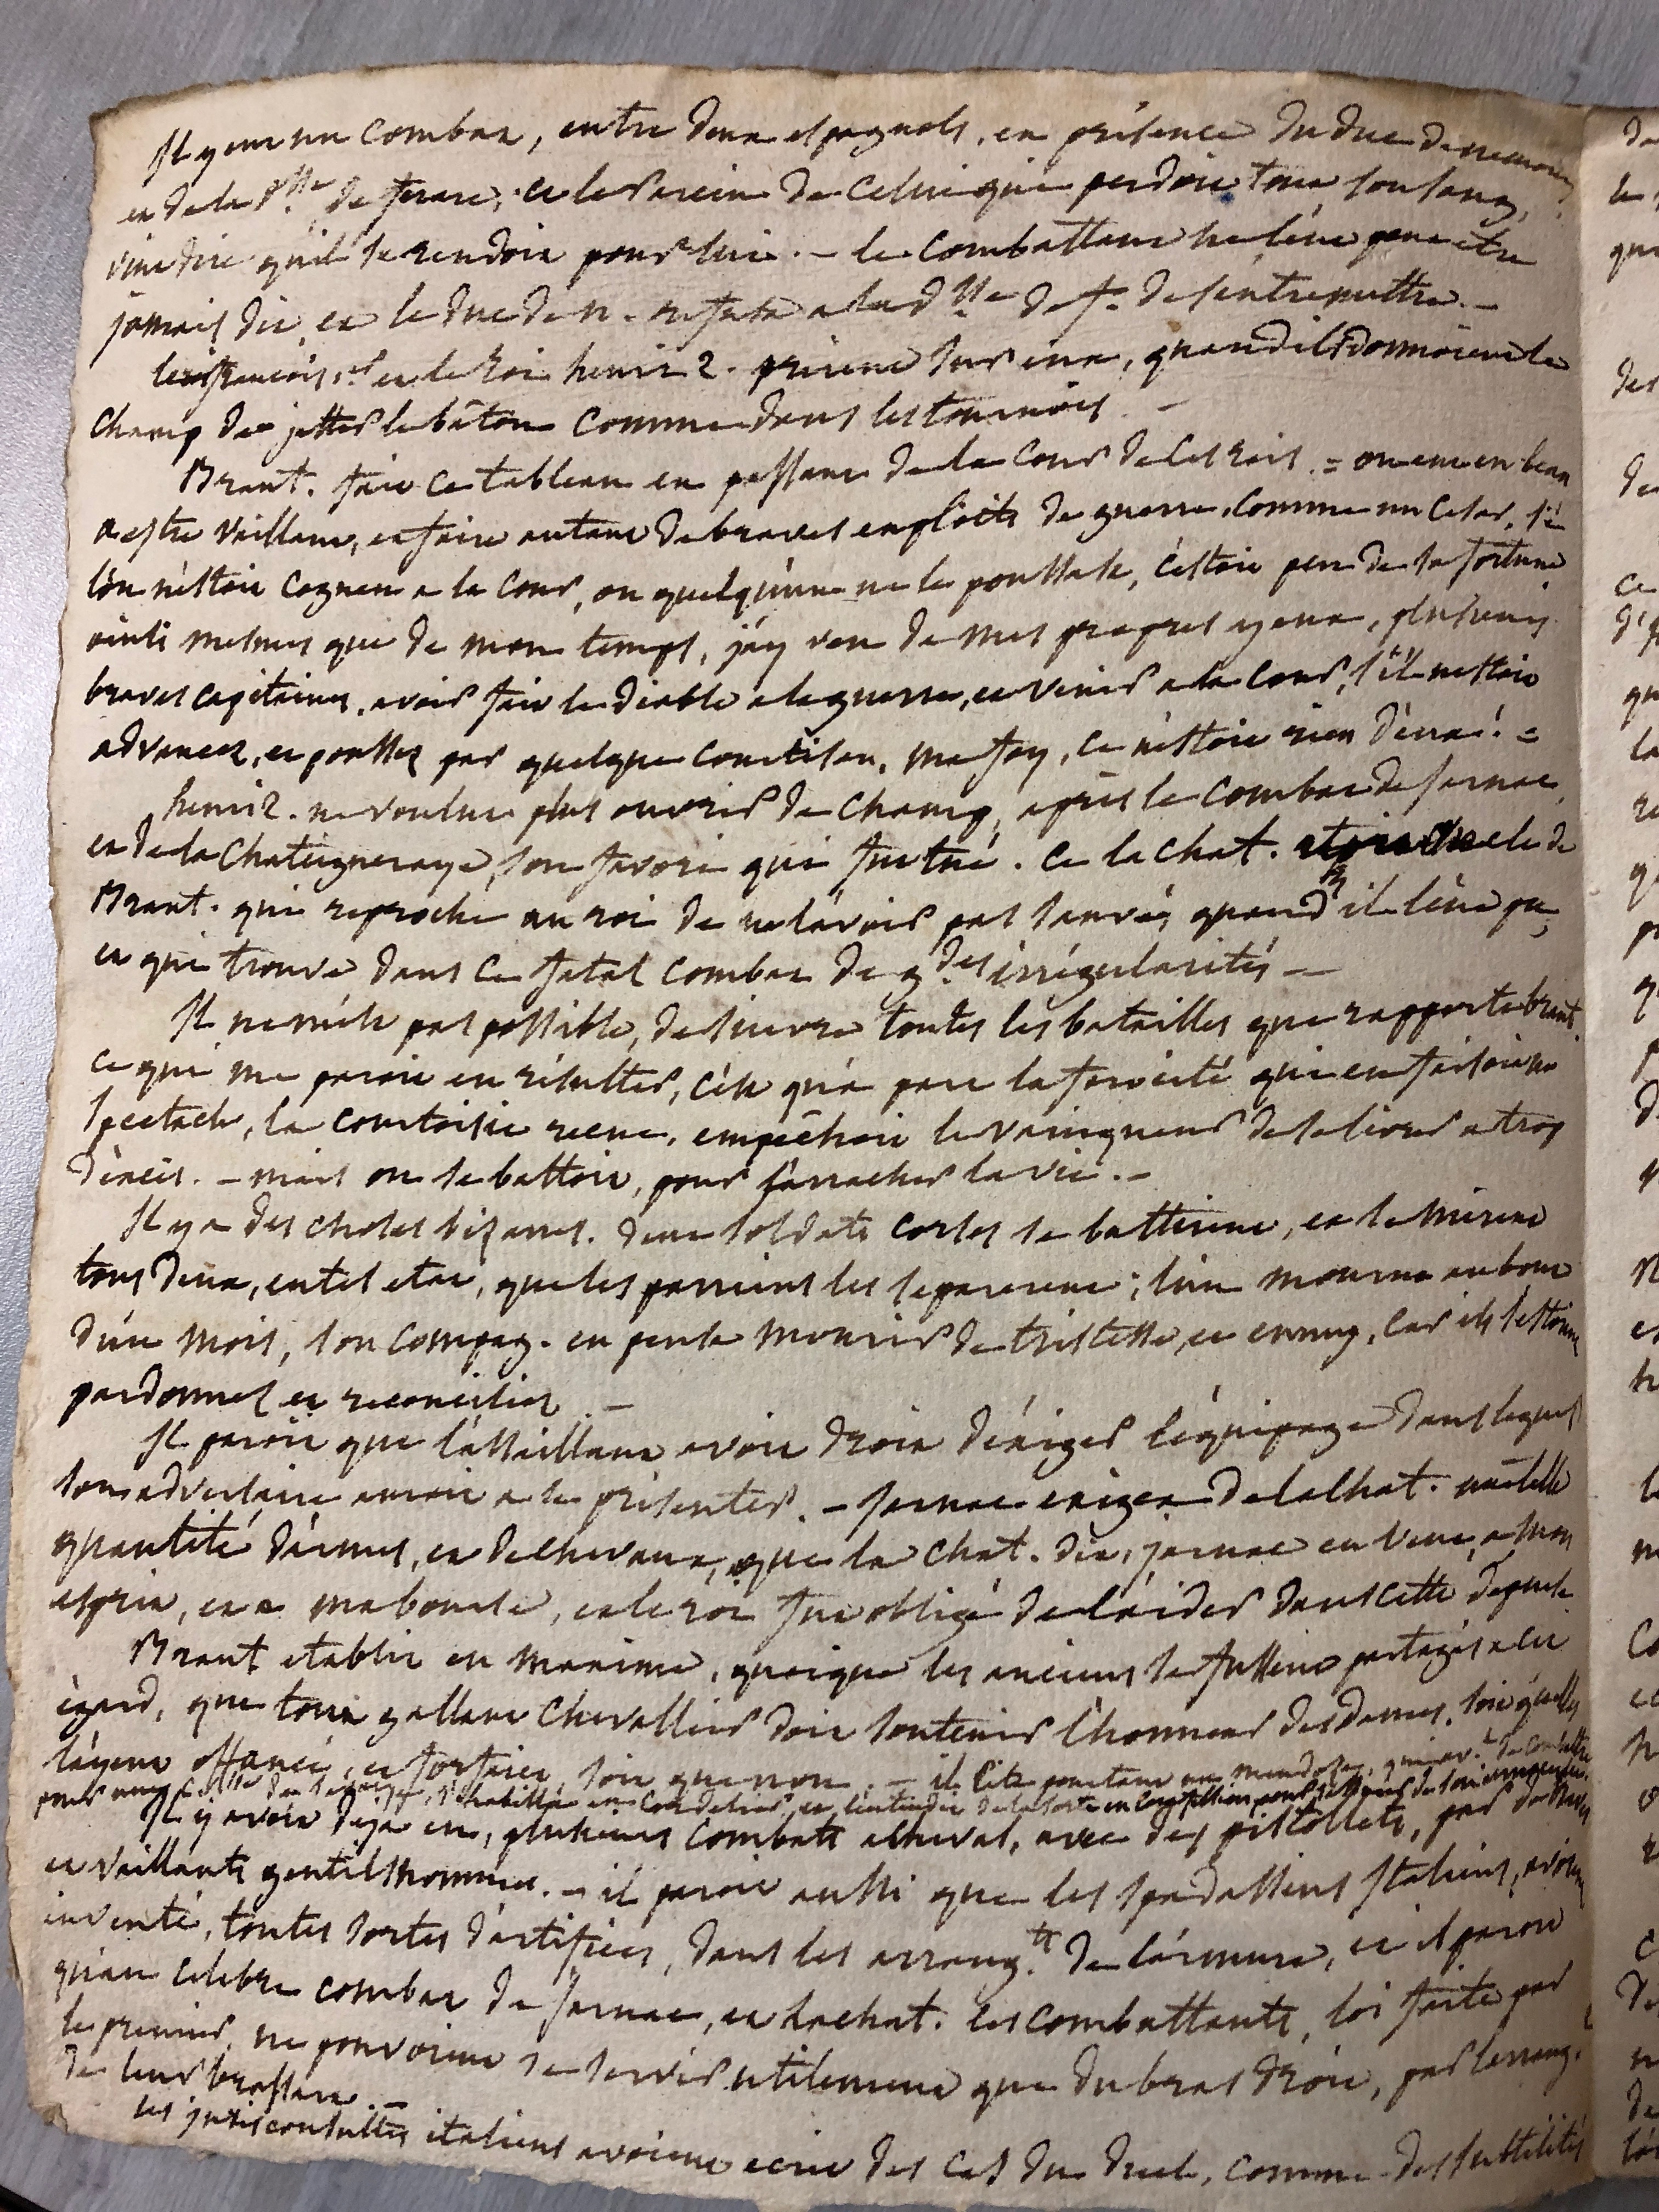 Il y eut un combat, entre deux espagnols, en présence du duc de nemours
et de la d.lle de ferare, et le parein de celui qui perdoit tout son sang,
vint dire qu'il se rendoit pour lui. – le combattant ne l'eut peut etre
jamais dit, et le duc de n. refusa a la d.lle de f. de s'entremettre. –
les françois, et le roi henri 2. prirent sur eux, quand ils donnoient le
champ de jetter le bâton comme dans les tournois. –
Brant. fait ce tableau en passant de la cour de ces rois. = on eut eu beau
a estre vaillant, et faire autant de braves exploits de guerre, comme un Cesar, si
l'on n'estoit cogneu a la cour, ou quelqu'un ne le poussast, c'estoit peu de sa fortune
ainsi mesmes que de mon temps, j'ay veu de mes propres yeux, plusieurs
braves capitaines, avoir fait le diable a la guerre, et venir a la cour, s'il n'estoit
advancez, et poussez par quelque courtisan, ma foy, ce n'estoit rien d'eux! =
henri 2. ne voulut plus ouvrir de champ, après le combat de Jarnac,
et de la Chateigneraye, son favori qui fut tué. Ce la Chat. etoit oncle de
Brant. qui reproche au roi de ne l'avoir pas sauvé, quand il l'eut pu,
et qui trouve dans ce fatal combat de g.des irrégularités –
Il ne m'est pas possible, de suivre toutes les batailles que rapporte brant.
ce qui me paroit en résulter, c'est qu'a part la férocité qui en faisoit un
spectacle, la courtoisie recue, empêchoit le vainqueur de se livrer a trop
d'excès. – mais on se battoit, pour s'arracher la vie. –
Il y a des choses bizarres. deux soldats corses se battirent, et se mirent
tous deux, en tel etat, que les parrains les separerent; l'un mourut au bout
d'un mois, son compag. en pensa mourir de tristesse, et ennuy, car ils s'estoient
pardonnez et reconciliez. –
Il paroit que l'assaillant avoit droit d'éxiger l'équipage dans lequel
son adversaire auroit a se présenter. – Jarnac exigea de la Chat. une telle
quantité d'armes, et de chevaux, que la Chat. dit, jarnac en veut, a mon
esprit, et a ma bourse, et le roi fut obligé de l'aider dans cette depense
Brant etablit en maxime, quoique les anciens se fussent partagés a cet
égard, que tout gallant Chevallier doit soutenir l'honneur des dames, soit qu'elles
l'ayent offancé, et forfaict, soit que non. – il cite pourtant un mendoze, qui av.t de combattre
pour une, s'habilla en cordelier, et l'entendit de la sorte en confession pour s'assurer de son innocence.
Il y avoit deja eu, plusieurs combats a cheval, avec des pistollets, par de braves
et vaillants gentilshommes. – il paroit aussi que les spadassins Italiens, avoient
inventé, toutes sortes d'artifices, dans les arrang.ts de l'armure, et il paroit
qu'au celebre combat de Jarnac, et la chat. les combattants, loi faite par
le premier, ne pouvoient se servir utilement que du bras droit, par l'arrang.t
de leur brassart. –
les jurisconsultes italiens avoient ecrit des cas du duel, comme des subtilités